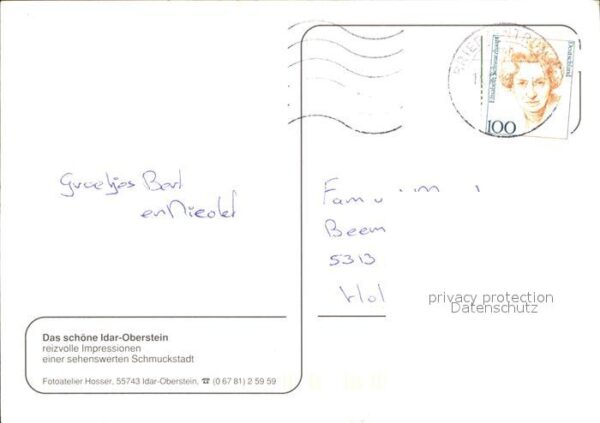 Deutschland
Elisabeth Schwarzhaupt
100
Groetjes Bart
en Nicole
Fam
Beem
5313
Hol
privacy protection
Datenschutz
Das schöne Idar-Oberstein
reizvolle Impressionen
einer sehenswerten Schmuckstadt
Fotoatelier Hosser, 55743 Idar-Oberstein, ☎ (0 67 81) 2 59 59